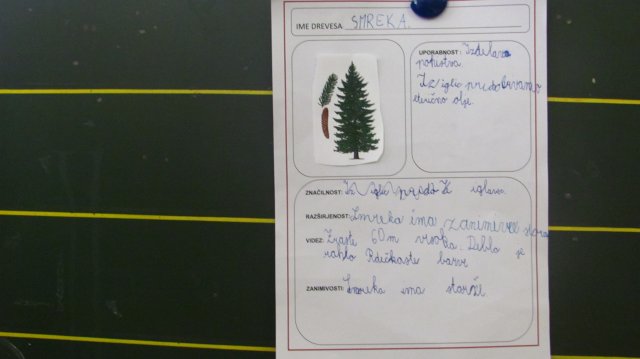 IME DREVESA: SMREKA.
UPORABNOST: Izdelava
pohištva.
Iz iglic pridobivamo
eterično olje.
ZNAČILNOST: Iz iglic
RAZŠIRJENOST: Smreka ima zanimive
VIDEZ: Zraste 60 m visoko. Deblo je
rahlo Rdečkaste barve
ZANIMIVOSTI: Smreka ima storž